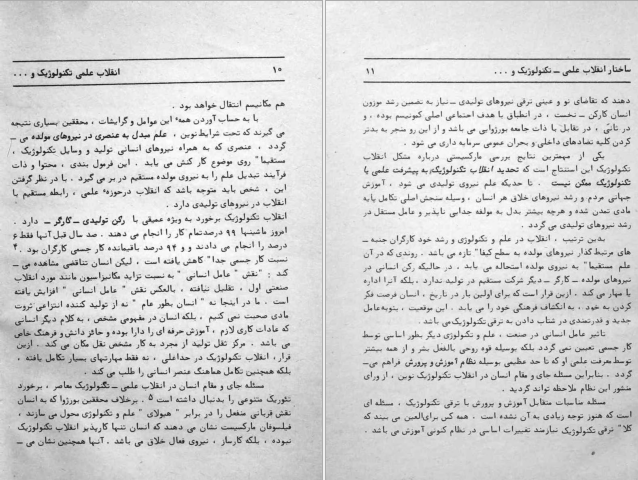 ۱۰ انقلاب علمی تکنولوژیک و ...
هم مکانیسم انتقال خواهد بود .
با به حساب آوردن همهٔ این عوامل و گرایشات ، محققین بسیاری نتیجه
می گیرند که تحت شرایط نوین ، علم مبدل به عنصری در نیروهای مولده می ـ
گردد ، عنصری که به همراه نیروهای انسانی تولید و وسایل تکنولوژیک ،
مستقیما" روی موضوع کار کنش می یابد . این فرمول بندی ، محتوا و ذات
فرآیند تبدیل علم را به نیروی مولده مستقیم در بر می گیرد . با در نظر گرفتن
این ، شخص باید متوجه باشد که انقلاب درحوزهٔ علمی ، رابطه مستقیم با
انقلاب در نیروهای تولیدی دارد .
انقلاب تکنولوژیک برخورد به ویژه عمیقی با رکن تولیدی ـ کارگر ـ دارد .
امروز ماشینها ۹۹ درصدتمام کار را انجام می دهند . صد سال قبل آنها فقط ۶
درصد را انجام می دادند و و ۹۴ درصد باقیمانده کار جسمی کارگران بود . ۴
نسبت کار جسمی جدا" کاهش یافته است ، لیکن انسان تناقضی مشاهده می ـ
کند : "نقش " عامل انسانی " به نسبت تزاید مکانیزاسیون مانند مورد انقلاب
صنعتی اول ، تقلیل نیافته ، بالعکس نقش " عامل انسانی " افزایش یافته
است . ما در اینجا نه " انسان بطور عام " نه از تولید کننده انتزاعی ثروت
مادی صحبت نمی کنیم ، بلکه انسان در مفهومی مشخص ، به کلام دیگر انسانی
که عادات کاری لازم ، آموزش حرفه ای را دارا بوده و حائز دانش و فرهنگ خاص
می باشد . مرکز ثقل تولید از مجرد به کار مشخص نقل مکان می کند . ازین
قرار ، انقلاب تکنولوژیک در حداعلی ، نه فقط مهارتهای بسیار تکامل یافته ،
بلکه همچنین تکامل هماهنگ عنصر انسانی را طلب می کند .
مسئله جای و مقام انسان در انقلاب علمی ـ تکنولوژیک معاصر ، برخورد
تئوریک متنوعی را بدنبال داشته است ۵ . برخلاف محققین بورژوا که به انسان
نقش قربانی منفعل را در برابر " هیولای " علم و تکنولوژی محول می سازند ،
فیلسوفان مارکسیست نشان می دهند که انسان تنها کارپذیر انقلاب تکنولوژیک
نبوده ، بلکه کارساز ، نیروی فعال خلاق می باشد . آنها همچنین نشان می ـ
ساختار انقلاب علمی ـ تکنولوژیک و ... ۱۱
دهند که تقاضای نو و عینی ترقی نیروهای تولیدی ـ نیاز به تضمین رشد موزون
انسان کارکن ـ نخست ، در انطباق با هدف اجتماعی اصلی کمونیسم بوده ، و
در ثانی ، در تقابل با ذات جامعه بورژوایی می باشد و از این رو منجر به بدتر
کردن کلیه تضادهای داخلی و بحران عمومی سرمایه داری می شود .
یکی از مهمترین نتایج بررسی مارکسیستی درباره مشکل انقلاب
تکنولوژیک این استنتاج است که تحدید انقلاب تکنولوژیک به پیشرفت علمی یا
تکنولوژیک ممکن نیست . تا حدیکه علم نیروی تولیدی می شود ، آموزش
مردمی و رشد نیروهای خلاق هر انسان ، وسیله سنجش اصلی تکامل پایه
مادی تمدن شده و هرچه بیشتر بدل به مولفه جدایی ناپذیر و عامل مستقل در
رشد نیروهای تولیدی می گردد .
بدین ترتیب ، انقلاب در علم و تکنولوژی و رشد خود کارگران جنبه ـ
های مرتبط گذار نیروهای مولده به سطح کیفا" تازه می باشد . روندی که در آن
علم مستقیما" به نیروی مولده استحاله می یابد ، در حالیکه رکن انسانی در
نیروهای مولده ـ کارگر ـ دیگر شرکت مستقیم در تولید ندارد ، بلکه آنرا اداره
یا مهار می کند . ازین قرار است که برای اولین بار در تاریخ ، انسان فرصت فکر
کردن به خود ، به انکشاف فرهنگی خود را می یابد . این موقعیت ، بتوبه عامل
جدید و قدرتمندی در شتاب دادن به ترقی تکنولوژیک می باشد .
تاثیر عامل انسانی در صنعت ، علم و تکنولوژی دیگر بطور اساسی توسط
کار جسمی تعیین نمی گردد بلکه بوسیله قوه روحی بالفعل بشر و از همه بیشتر
بوسیله معرفت علمی او که تا حد عظیمی بوسیله نظام آموزش و پرورش فراهم می ـ
باشد . بنابراین مسئله جای و مقام انسان در انقلاب تکنولوژیک نوین ، از ورای
منشور این نظام ملاحظه تواند گردید .
مسئله مناسبات متقابل آموزش و پرورش با ترقی تکنولوژیک ، مسئله ای
است که هنوز توجه زیادی به آن نشده است . همه کس برای‌العین می بیند که
کلا" ترقی تکنولوژیک نیازمند تغییرات اساسی در نظام کنونی آموزش می باشد .